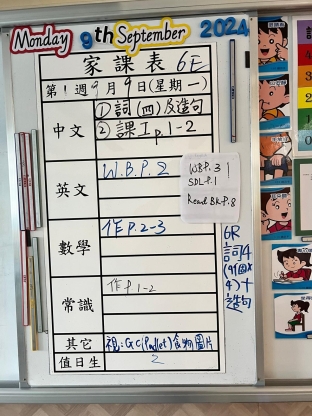 Monday 9th September 2024
家課表 6E
第1週9月9日(星期一)
中文
①詞(四)及造句
②課工p.1-2
英文
W.B.P.2
WBP.31
SDLP.1
Read BKP.8
數學
作P.2-3
6R
詞4
造句
常識
作p.1-2
其它
視:GC(Padlet)食物圖片
值日生
2